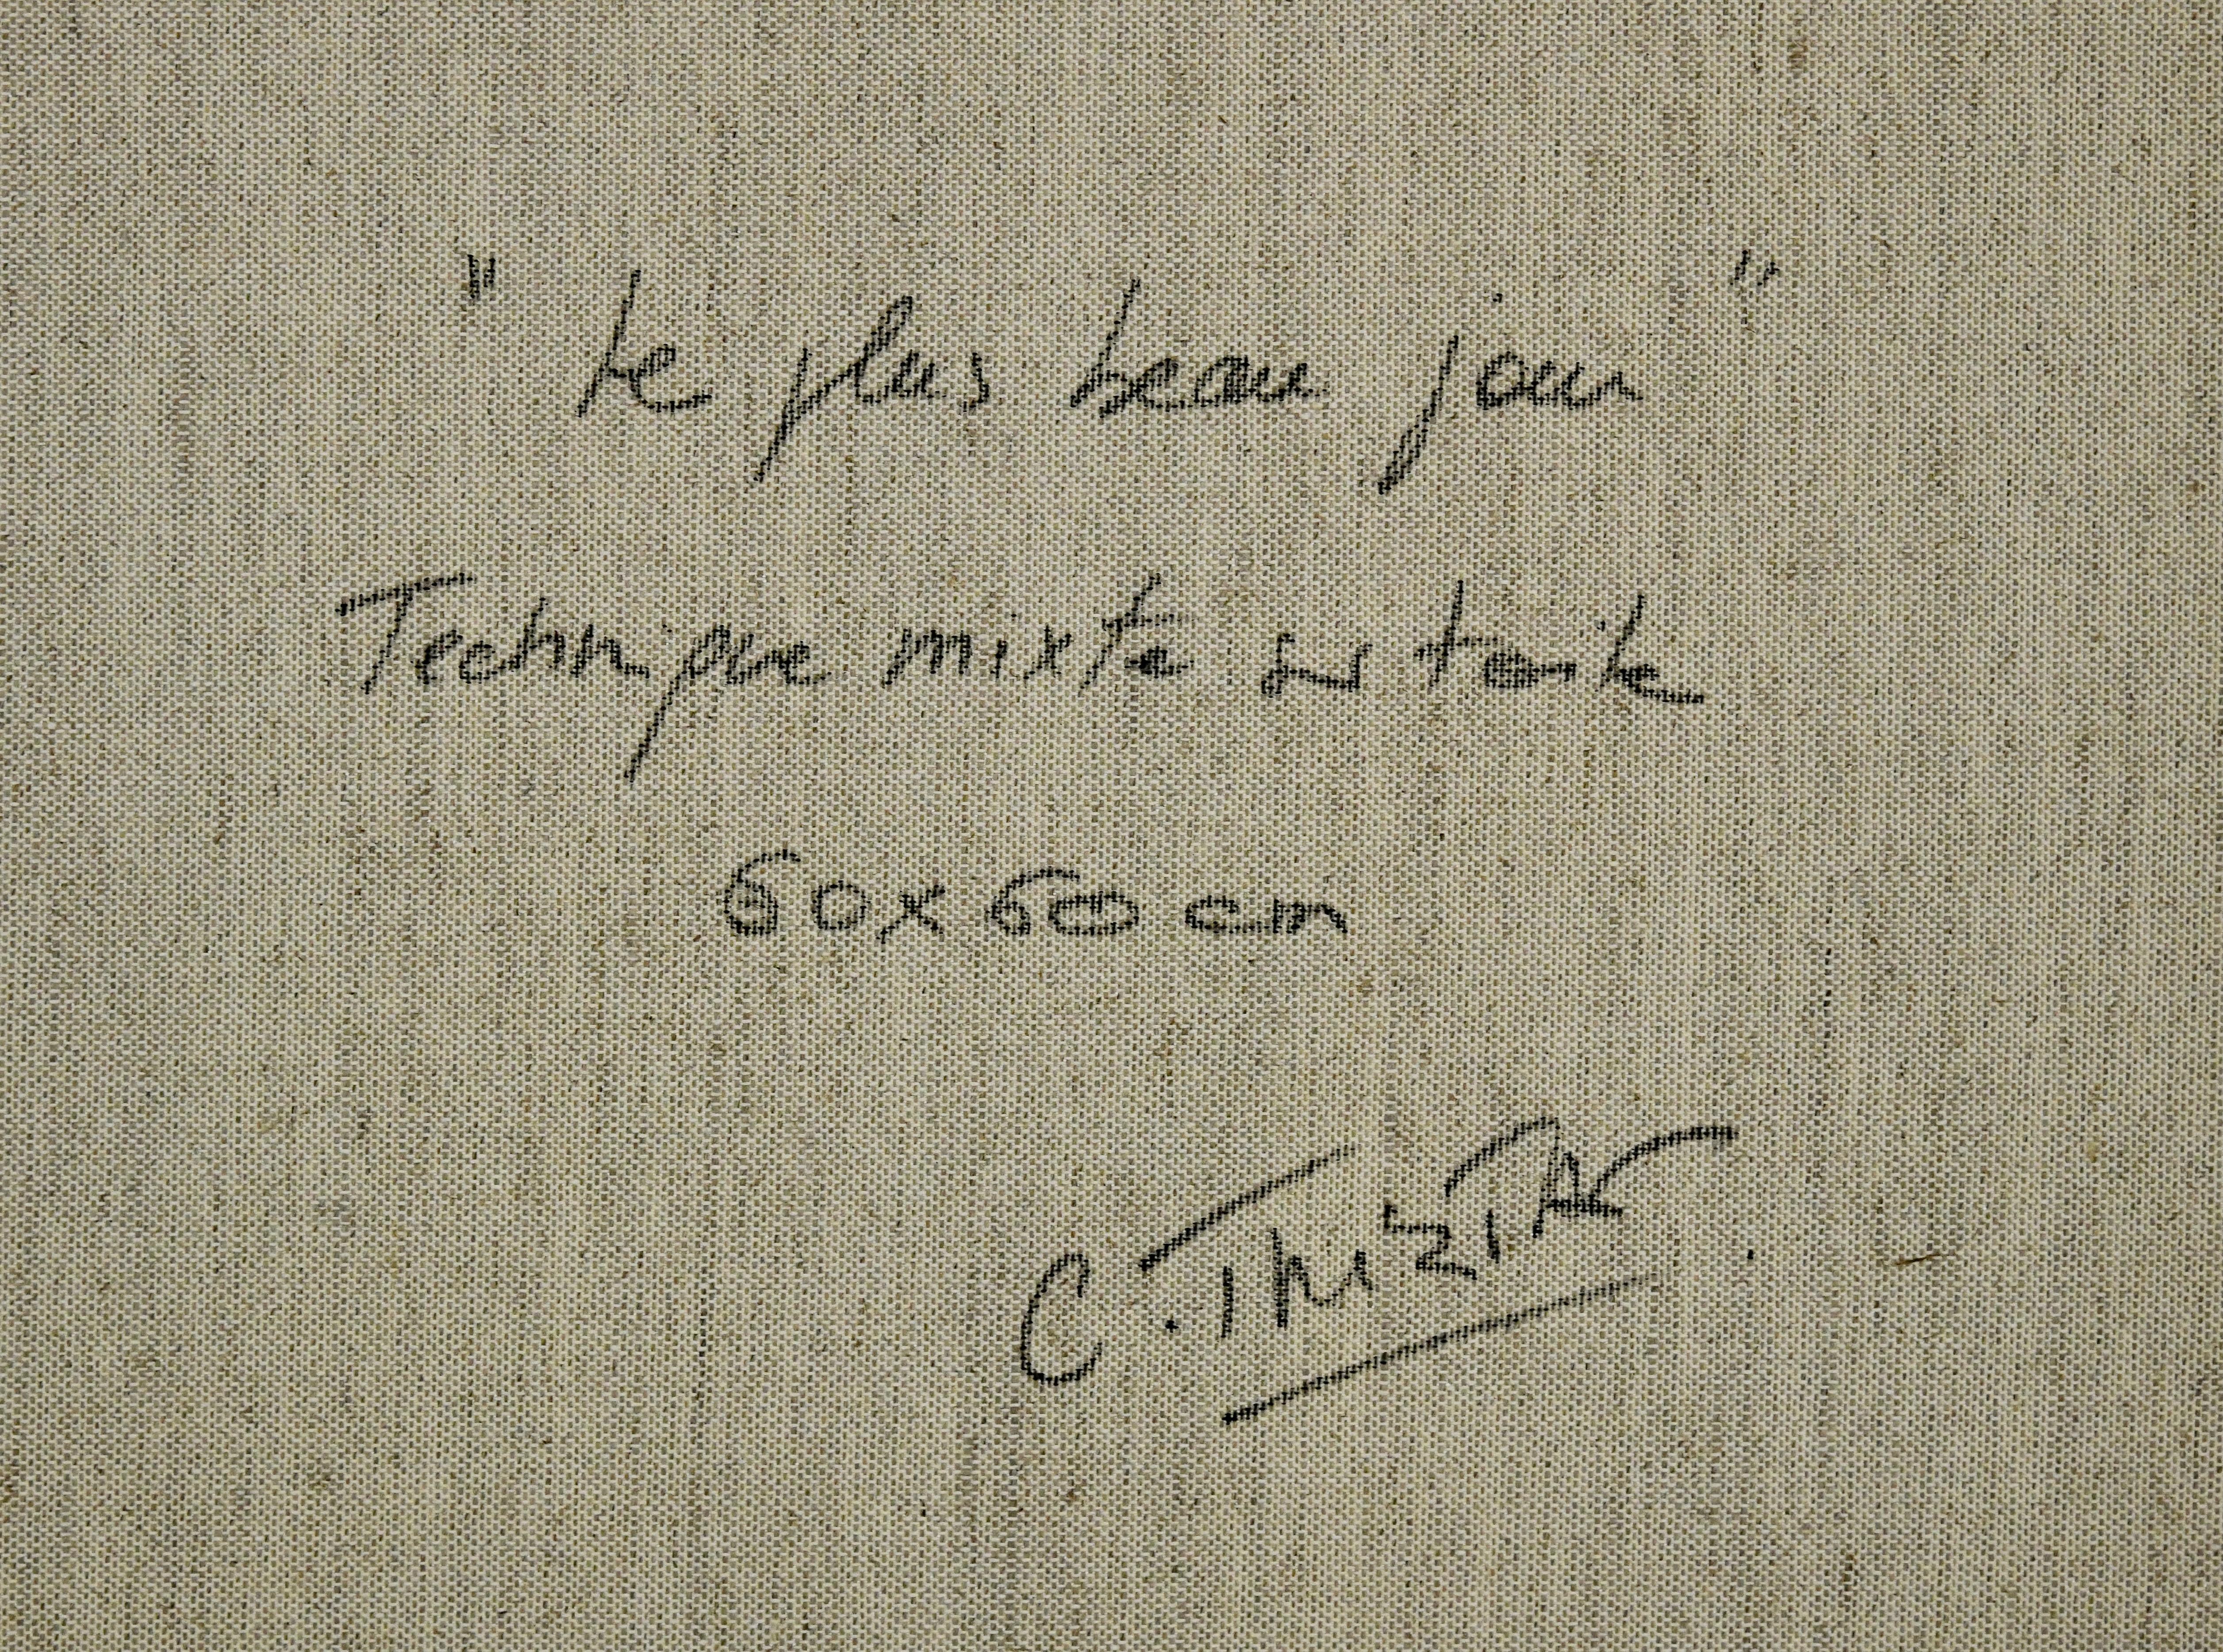 " Le plus beau jour "
Technique mixte sur toile
60x60 cm
C. THIZIAR.